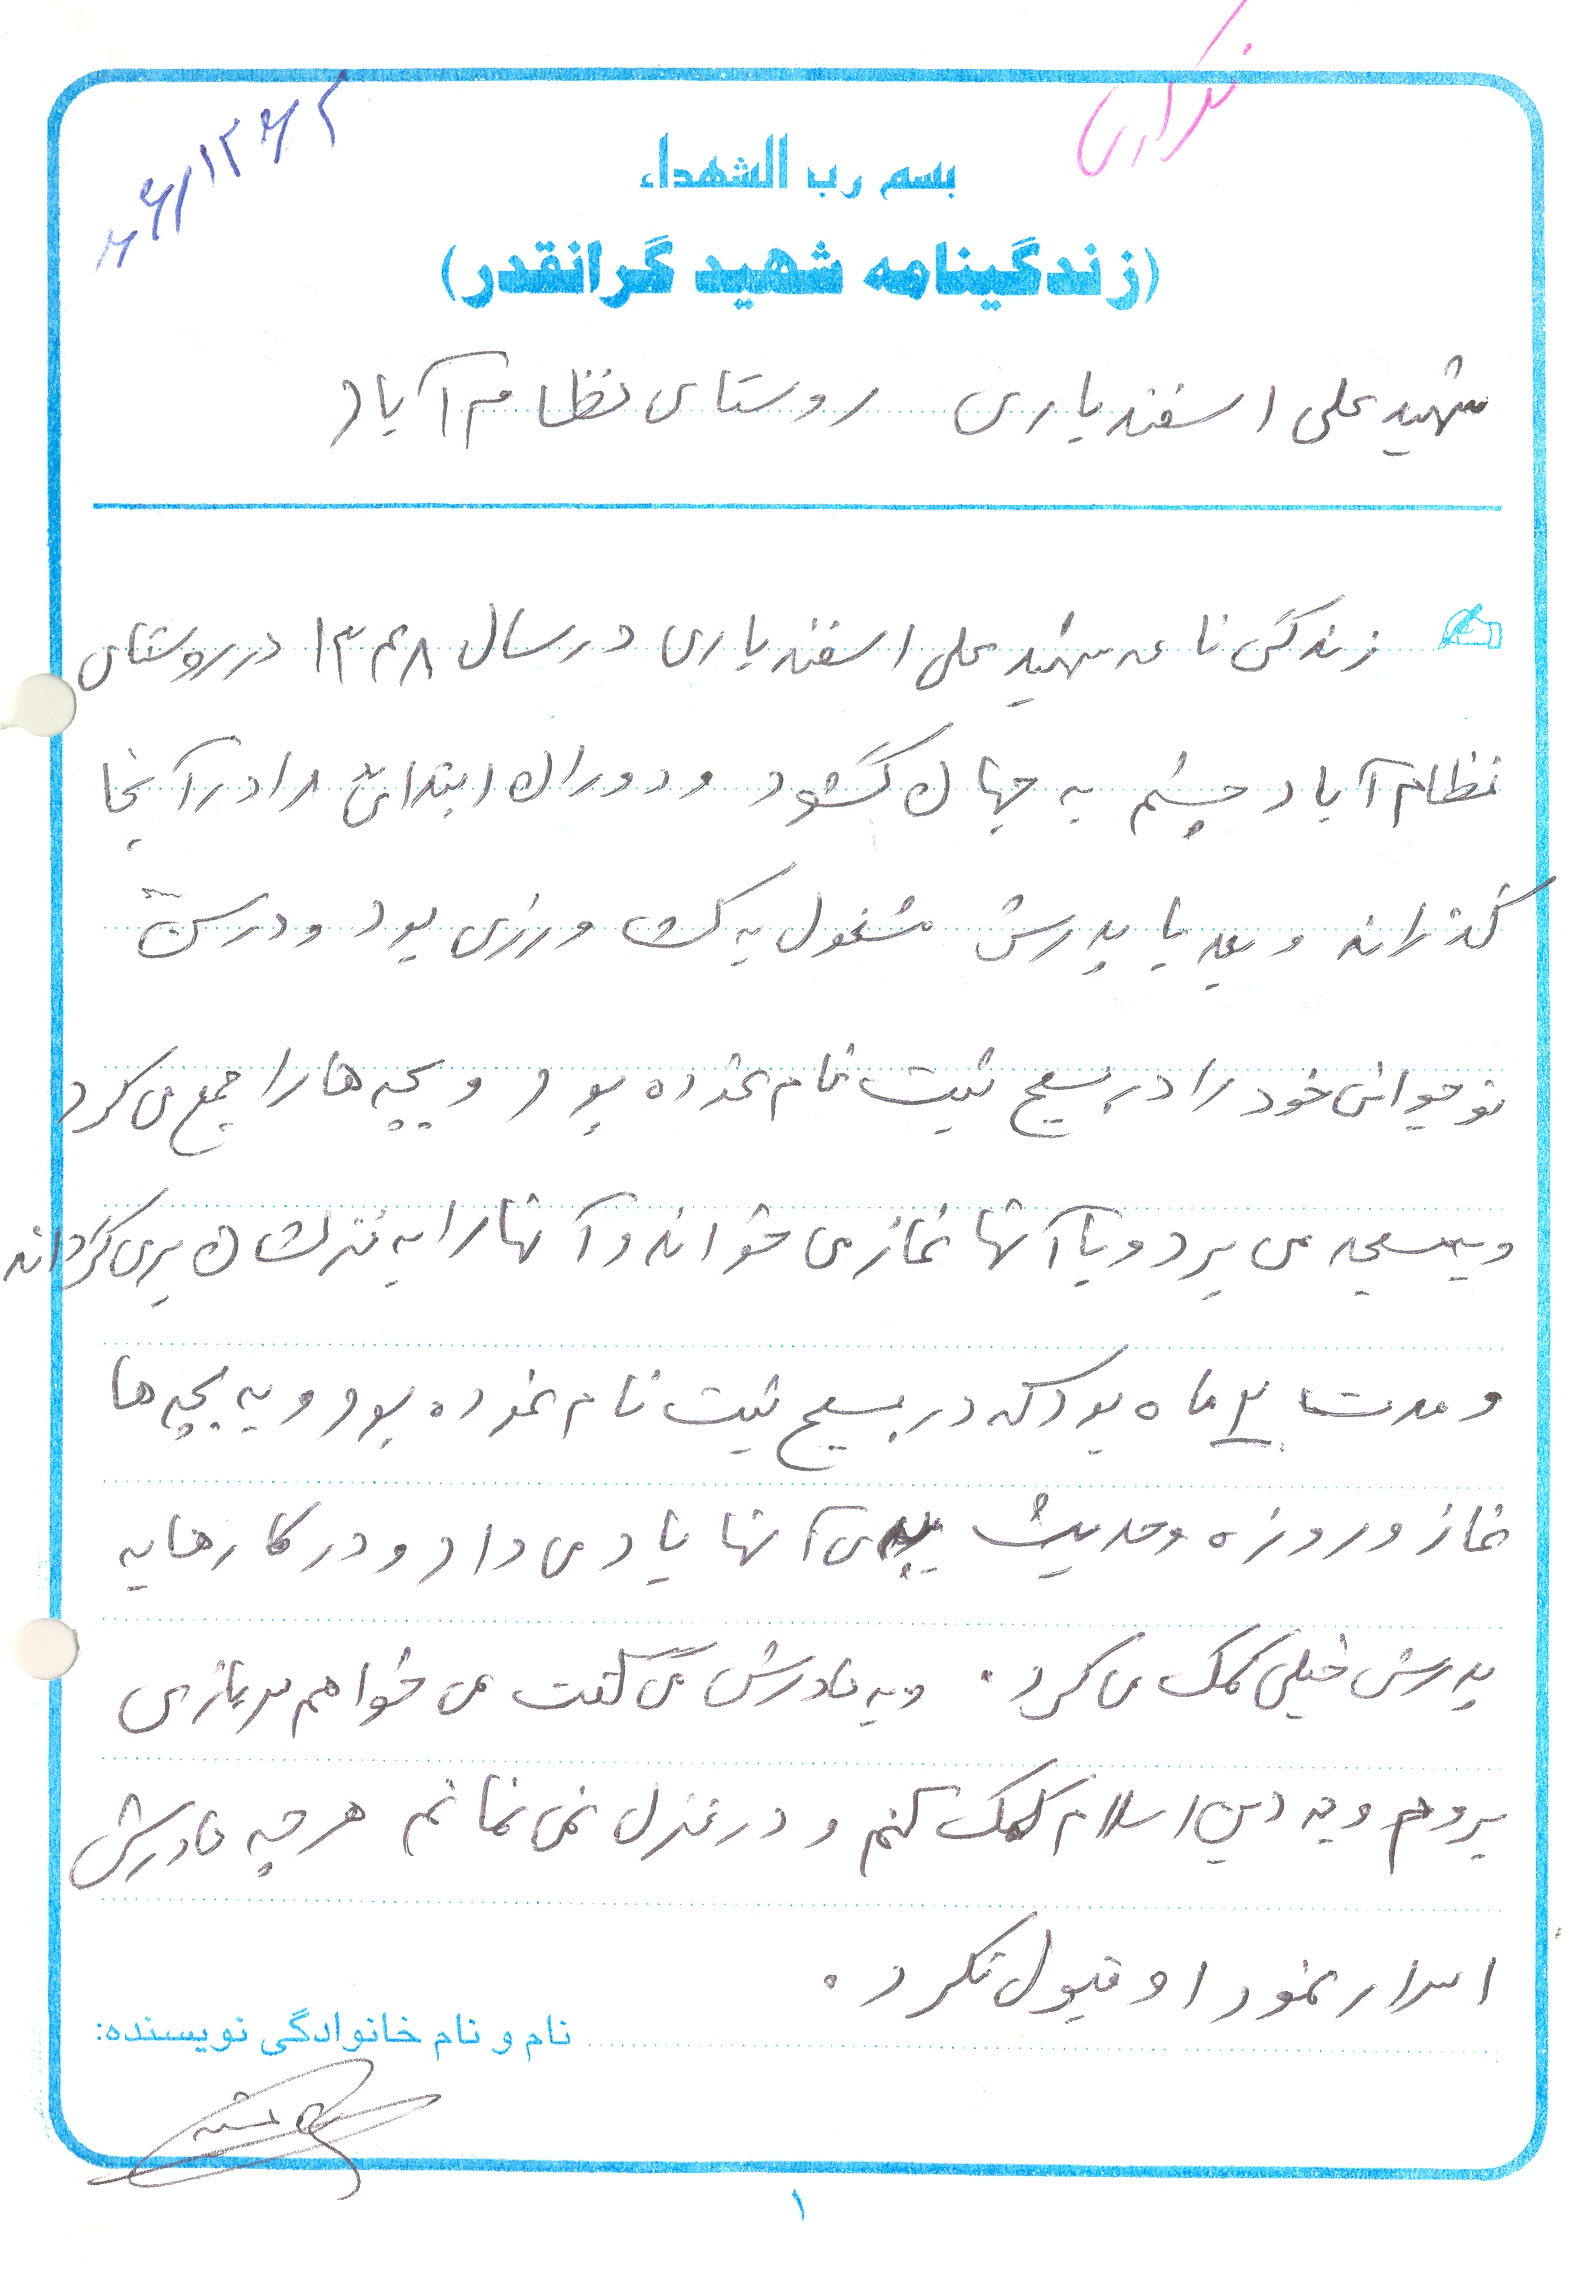 تکراری
۶۶/۱۲۶۲
بسم رب الشهداء
(زندگینامه شهید گرانقدر)
شهید علی اسفندیاری روستای نظام آباد
زندگی نامه شهید علی اسفندیاری در سال ۱۳۴۸ در روستای
نظام آباد چشم به جهان گشود و دوران ابتدائی را در آنجا
گذراند و بعد با پدرش مشغول به کشاورزی بود و در سن
نوجوانی خود را در بسیج ثبت نام نموده بود و بچه ها را جمع می کرد
و به مسجد می برد و با آنها نماز می خواند و آنها را به منزلشان برمی گرداند
و مدت ماه بود که در بسیج ثبت نام نموده بود و به بچه ها
نماز و روزه و حدیث آنها یاد می داد و در کارها به
پدرش خیلی کمک می کرد. و به مادرش می گفت می خواهم سربازی
بروم و به دین اسلام کمک کنم و در منزل نمی نمانم هر چه مادرش
اسرار نمود او قبول نکرد.
نام و نام خانوادگی نویسنده:
۱